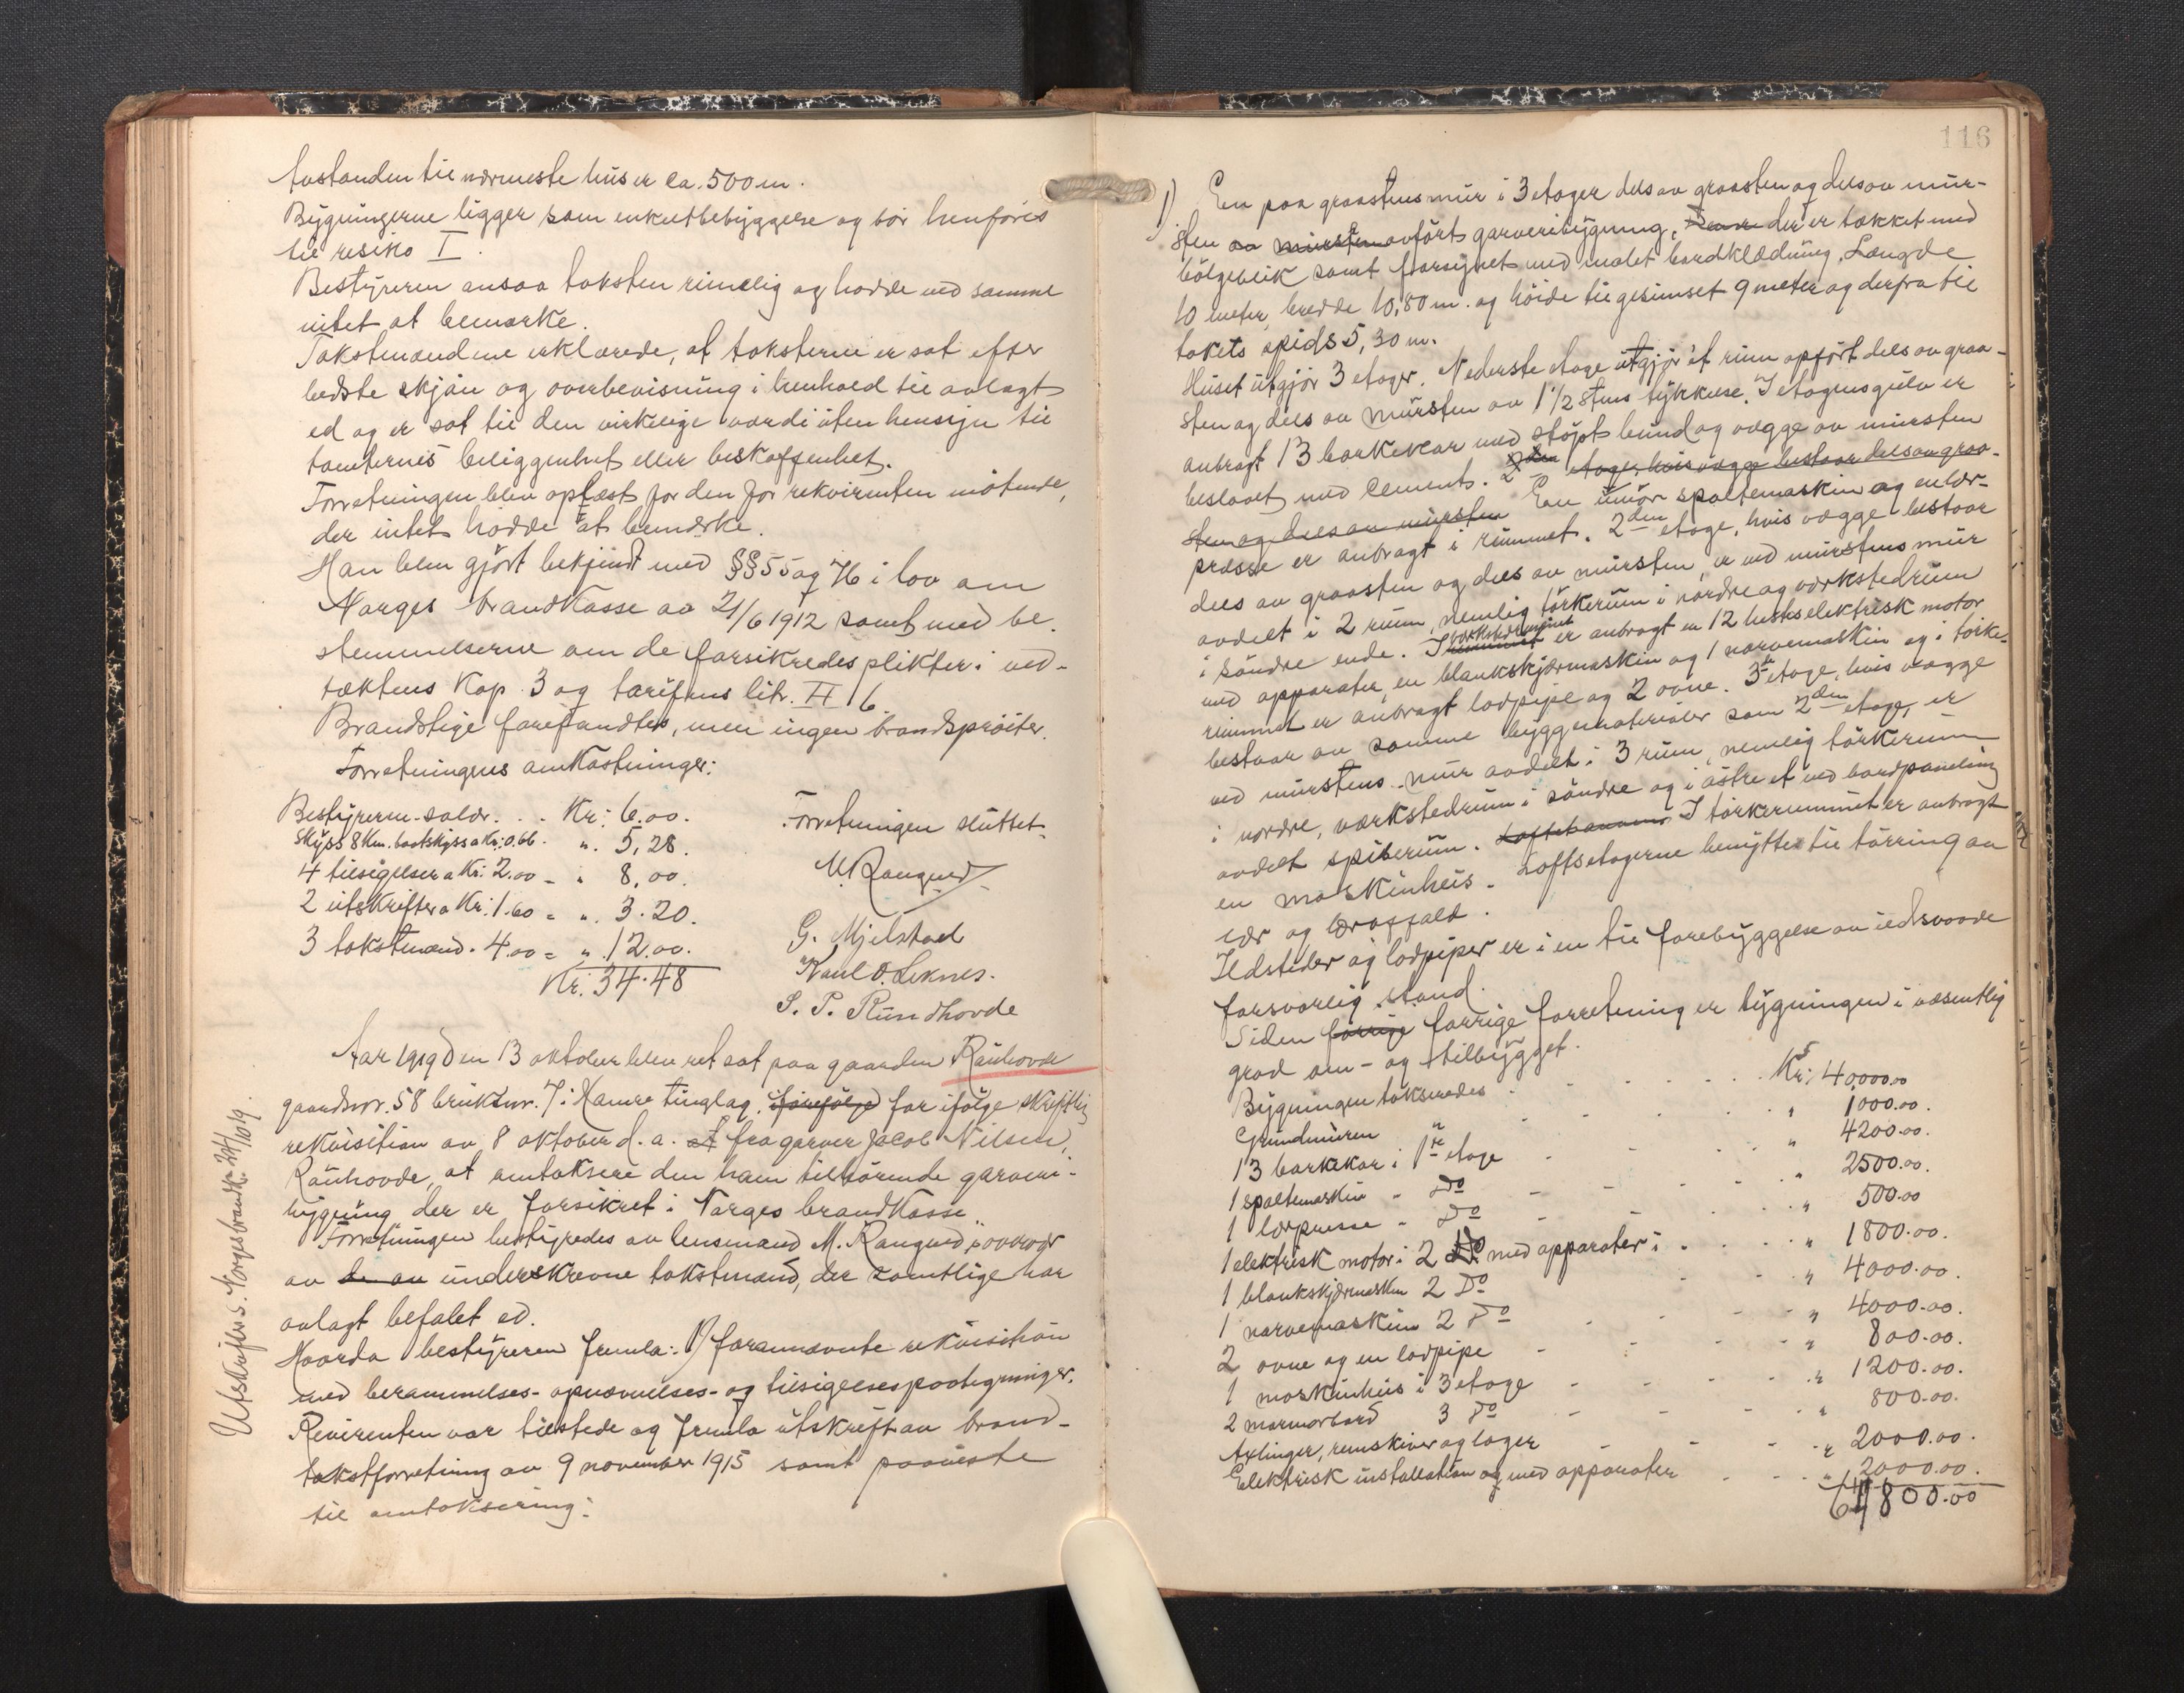 Avstanden til nærmeste hus er ca. 500 m.
Bygningerne ligger som enkeltbebyggelse og bør henføres
til resiko I.
Bestyreren ansaa taksten rimelig og hadde ved samme
intet at bemærke.
Takstmændene erklærede, at taksterne er sat efter
bedste skjön og overbevisning i henhold til avlagt
ed og er sat til den virkelige værdi uten hensyn til
tomternes beliggenhet eller beskaffenhet.
Forretningen blev oplæst for den for rekvirenten mötende,
der intet hadde at bemærke.
Han blev gjört bekjendt med §§ 55 og 76 i lov om
Norges brandkasse av 21/6 1912 samt med be-
stemmelserne om de forsikredes plikter i ved-
tæktens Kap. 3 og tarifens litr. H 6.
Brandstige forefandtes, men ingen brandspröiter.
Forretningens omkostninger:
Bestyreren-salær. . . Kr: 6.00.
Skyss 8 Km. baatskyss a Kr: 0.66. " 5,28.
4 tilsigelser a Kr: 2.00 - " 8,00.
2 utskrifter a Kr: 1.60 = " 3.20.
3 takstmænd. 4.00 = " 12.00.
Kr. 34.48
Forretningen sluttet
M. Rangned
G. Mjelstad
Karl O. Leknes.
S. P. Rundhovde
Aar 1919 den 13 oktober blev ret sat paa gaarden Rauhovde
gaardsnr. 58 bruksnr. 7 i Hamre tinglag, iförefölge for ifölge skriftlig
rekvisition av 8 oktober d. a. at fra garver Jacob Nilsen,
Rauhovde, at omtaksere den ham tilhörende garveri-
bygning der er forsikret i Norges brandkasse
Forretningen bestyredes av lensmand M. Rangned i overvær
av de av underskrevne takstmænd, der samtlige har
avlagt befalet ed.
Hvorda bestyreren fremla: 1) forannævnte rekvisition
med berammelses- opnævnelses- og tilsigelsespaategninger.
Revirenten var tilstede og fremla utskrift av brand-
takstforretning av 9 november 1915 samt paaviste
til omtaksering:
Utskrift s. Norges brandk. 24/10 19.
116
1) En paa graastensmur i 3 etager dels av graasten og dels av mur-
sten av mursten opfört garveribygning, der er tækket med
bölgeblik samt forsynet med malet bordklædning. Længde
10 meter, bredde 10,80 m. og höide til gesimset 9 meter og derfra til
takets spids 5,30 m.
Huset utgjör 3 etager. Nederste etage utgjör et rum opfört dels av graa-
sten og dels av mursten av 1 1/2 stens tykkelse. I etagens gulv er
anbragt 13 barkekar med stöpt bund og vægge av mursten
beslaaet med cement. 2den etage, hvis vægge bestaar dels av graa-
sten og dels av mursten En spaltemaskin og en lær-
presse er anbragt i rummet. 2den etage, hvis vægge bestaar
dels av graasten og dels av mursten, er ved murstens mur
avdelt i 2 rum, nemlig törkerum i nordre og værkstedrum
i söndre ende. I rummet værkstedrummet er anbragt en 12 hestes elektrisk motor
med apparater, en blankskjærmaskin og 1 narvemaskin og i törke-
rummet er anbragt ladpipe og 2 ovne. 3de etage, hvis vægge
bestaar av samme byggematerialer som 2den etage, er
ved murstens mur avdelt i 3 rum, nemlig törkerum
i nordre, værkstedrum i söndre og i östre et ved bordpaneling
avdelt spiserum. I törkerummet er anbragt
en maskinheis. Loftsetagerne benyttes til törring av
lær og læraffald.
Ildsteder og ladpiper er i en til forebyggelse av ildsvaade
forsvarlig stand.
Siden forrige forrige forretning er bygningen i væsentlig
grad om- og tilbygget.
Bygningen takseredes . . . Kr: 40000.00
Grundmuren " - - - " 1000.00.
13 barkekar i 1ste etage - - - " 4200.00.
1 spaltemaskin - Do - - - " 2500.00.
1 lærpresse - Do - - - " 500.00
1 elektrisk motor i 2 Do med apparater i . . . " 1800.00.
1 blankskjærmaskin 2 Do - - - " 4000.00.
1 narvemaskin 2 Do - - - " 4000.00.
2 ovne og en ladpipe - - - " 800.00.
1 maskinheis i 3 etage - - - " 1200.00.
2 marmorbord 3 Do - - - " 800.00.
Axlinger, remskiver og lager - - - " 2000.00.
Elektrisk installation og med apparater - - - " 2000.00.
64800.00